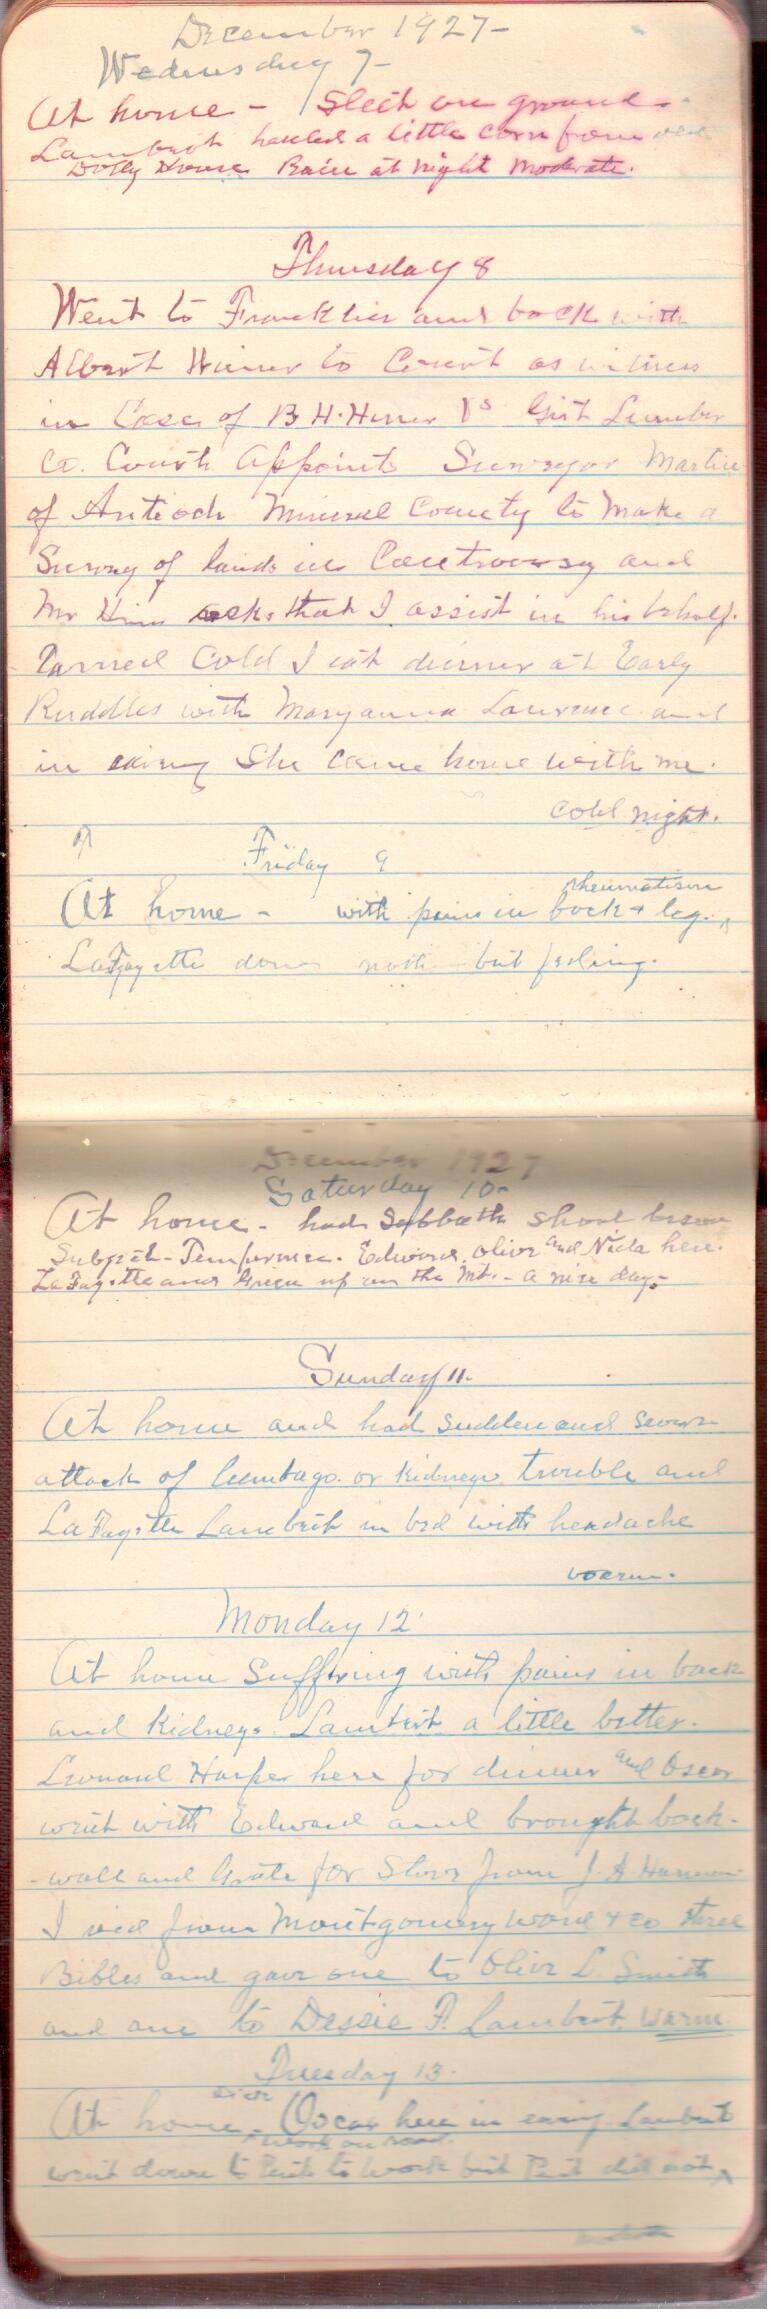 December 1927-
Wednesday 7-
At home - Sleet on ground -
Lambert hauled a little corn from old
Dolly House Rain at night moderate.
Thursday 8
Went to Franklin and back with
Albert to Court as witness
in Case of B.H. Vs Lumber
Co. Court Appoints Surveyor Martin
of Antioch Mineral County to make a
Survey of lands in Controversy and
Mr asks that I assist in his behalf.
Turned Cold I eat dinner at Early
Ruddles with Maryanna Laurence and
in evening She came home with me.
cold night.
Friday 9
rheumatism
At home - with pains in back + leg.
LaFayette down not but feeling.
December 1927
Saturday 10-
At home - had Sabbath School lesson
Subject - Temperance. Edward, Olive and Neda here.
LaFayette and up on the Mt. - a nice day -
Sunday 11.
At home and had sudden and severe
attack of lumbago or kidney trouble and
LaFayette Lambert in bed with headache
warm.
Monday 12
At home Suffering with pains in back
and Kidneys. Lambert a little better.
Leonard Harper here for dinner and Oscar
went with Edward and brought back-
-wall and Grate for Stove from J.A.
I recd from Montgomery Ward + co three
Bibles and gave one to Olive L. Smith
and one to Dessie F. Lambert. Warm
Tuesday 13.
At home - Oscar here in evening. Lambert
work on road.
went down to to work but did not